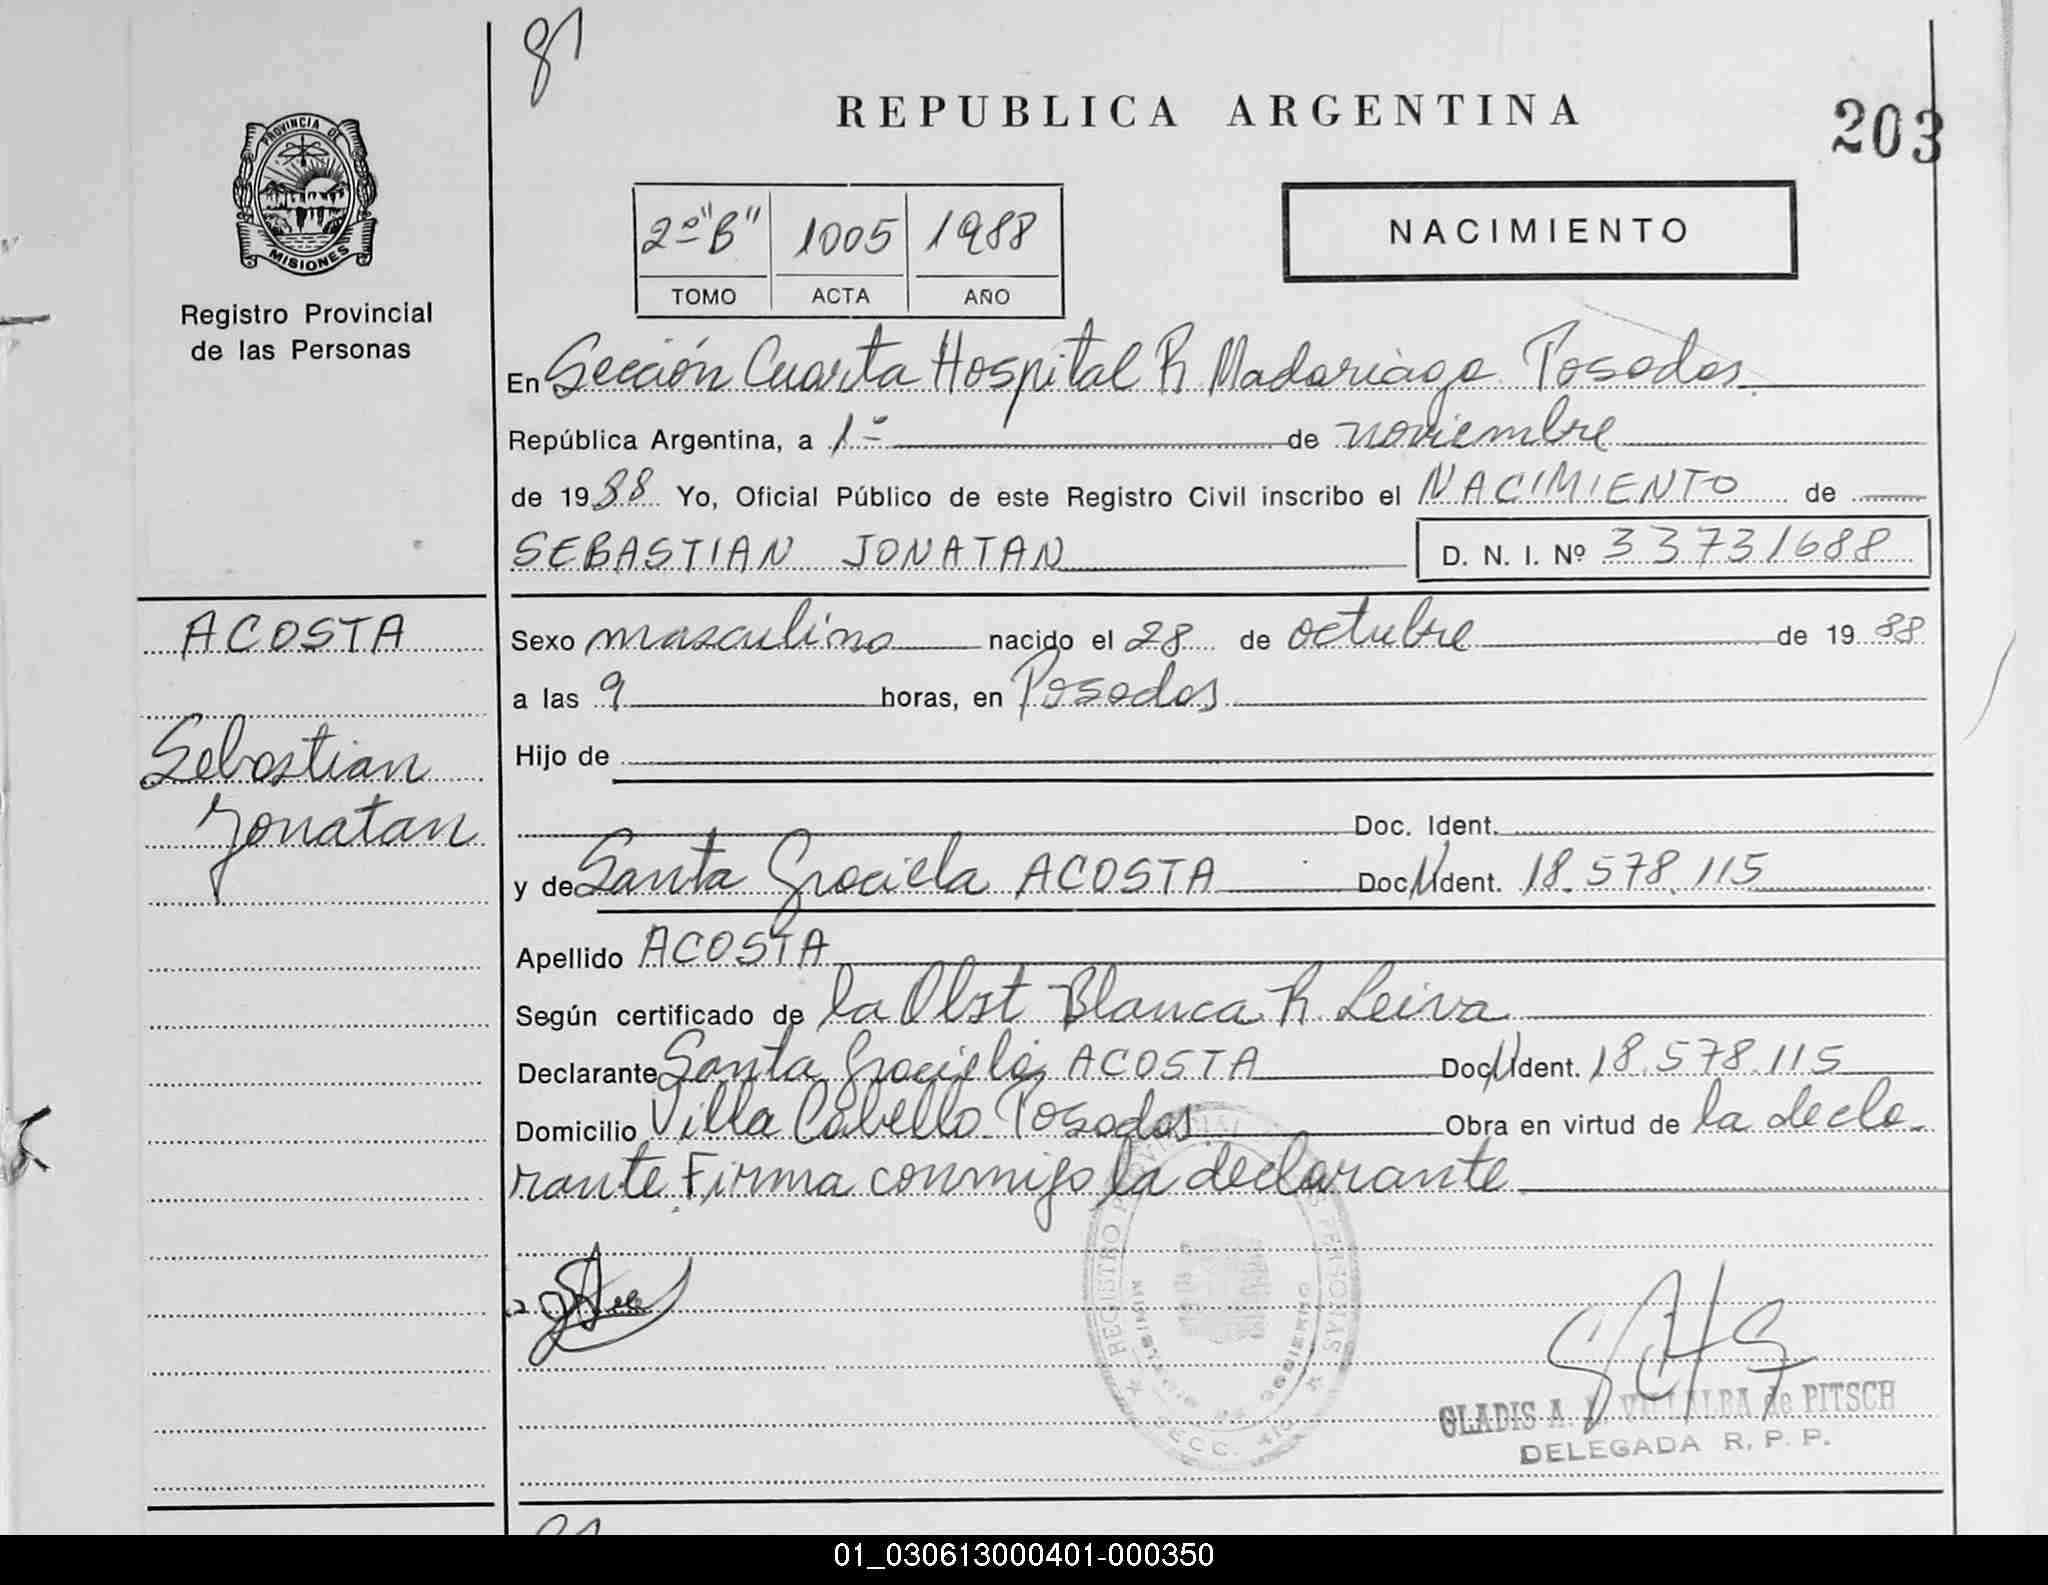 81
REPUBLICA ARGENTINA
203
PROVINCIA DE
MISIONES
Registro Provincial
de las Personas
2º "B" 1005 1988
TOMO ACTA AÑO
NACIMIENTO
En Sección Cuarta Hospital R Madariaga Posadas
República Argentina, a 1º de noviembre
de 1988 Yo, Oficial Público de este Registro Civil inscribo el NACIMIENTO de
SEBASTIAN JONATAN D. N. I. Nº 33731688
ACOSTA
Sebastian
Jonatan
Sexo masculino nacido el 28 de octubre de 1988
a las 9 horas, en Posadas
Hijo de
Doc. Ident.
y de Santa Graciela ACOSTA Doc. Ident. 18.578.115
Apellido ACOSTA
Según certificado de la Obst Blanca R Leiva
Declarante Santa Graciela ACOSTA Doc. Ident. 18.578.115
Domicilio Villa Cabello Posadas Obra en virtud de la decla-
rante. Firma conmigo la declarante
REGISTRO PROVINCIAL DE LAS PERSONAS
MINISTERIO DE GOBIERNO
SECC. 4ta
GLADIS A. VILLALBA de PITSCH
DELEGADA R. P. P.
01_030613000401-000350